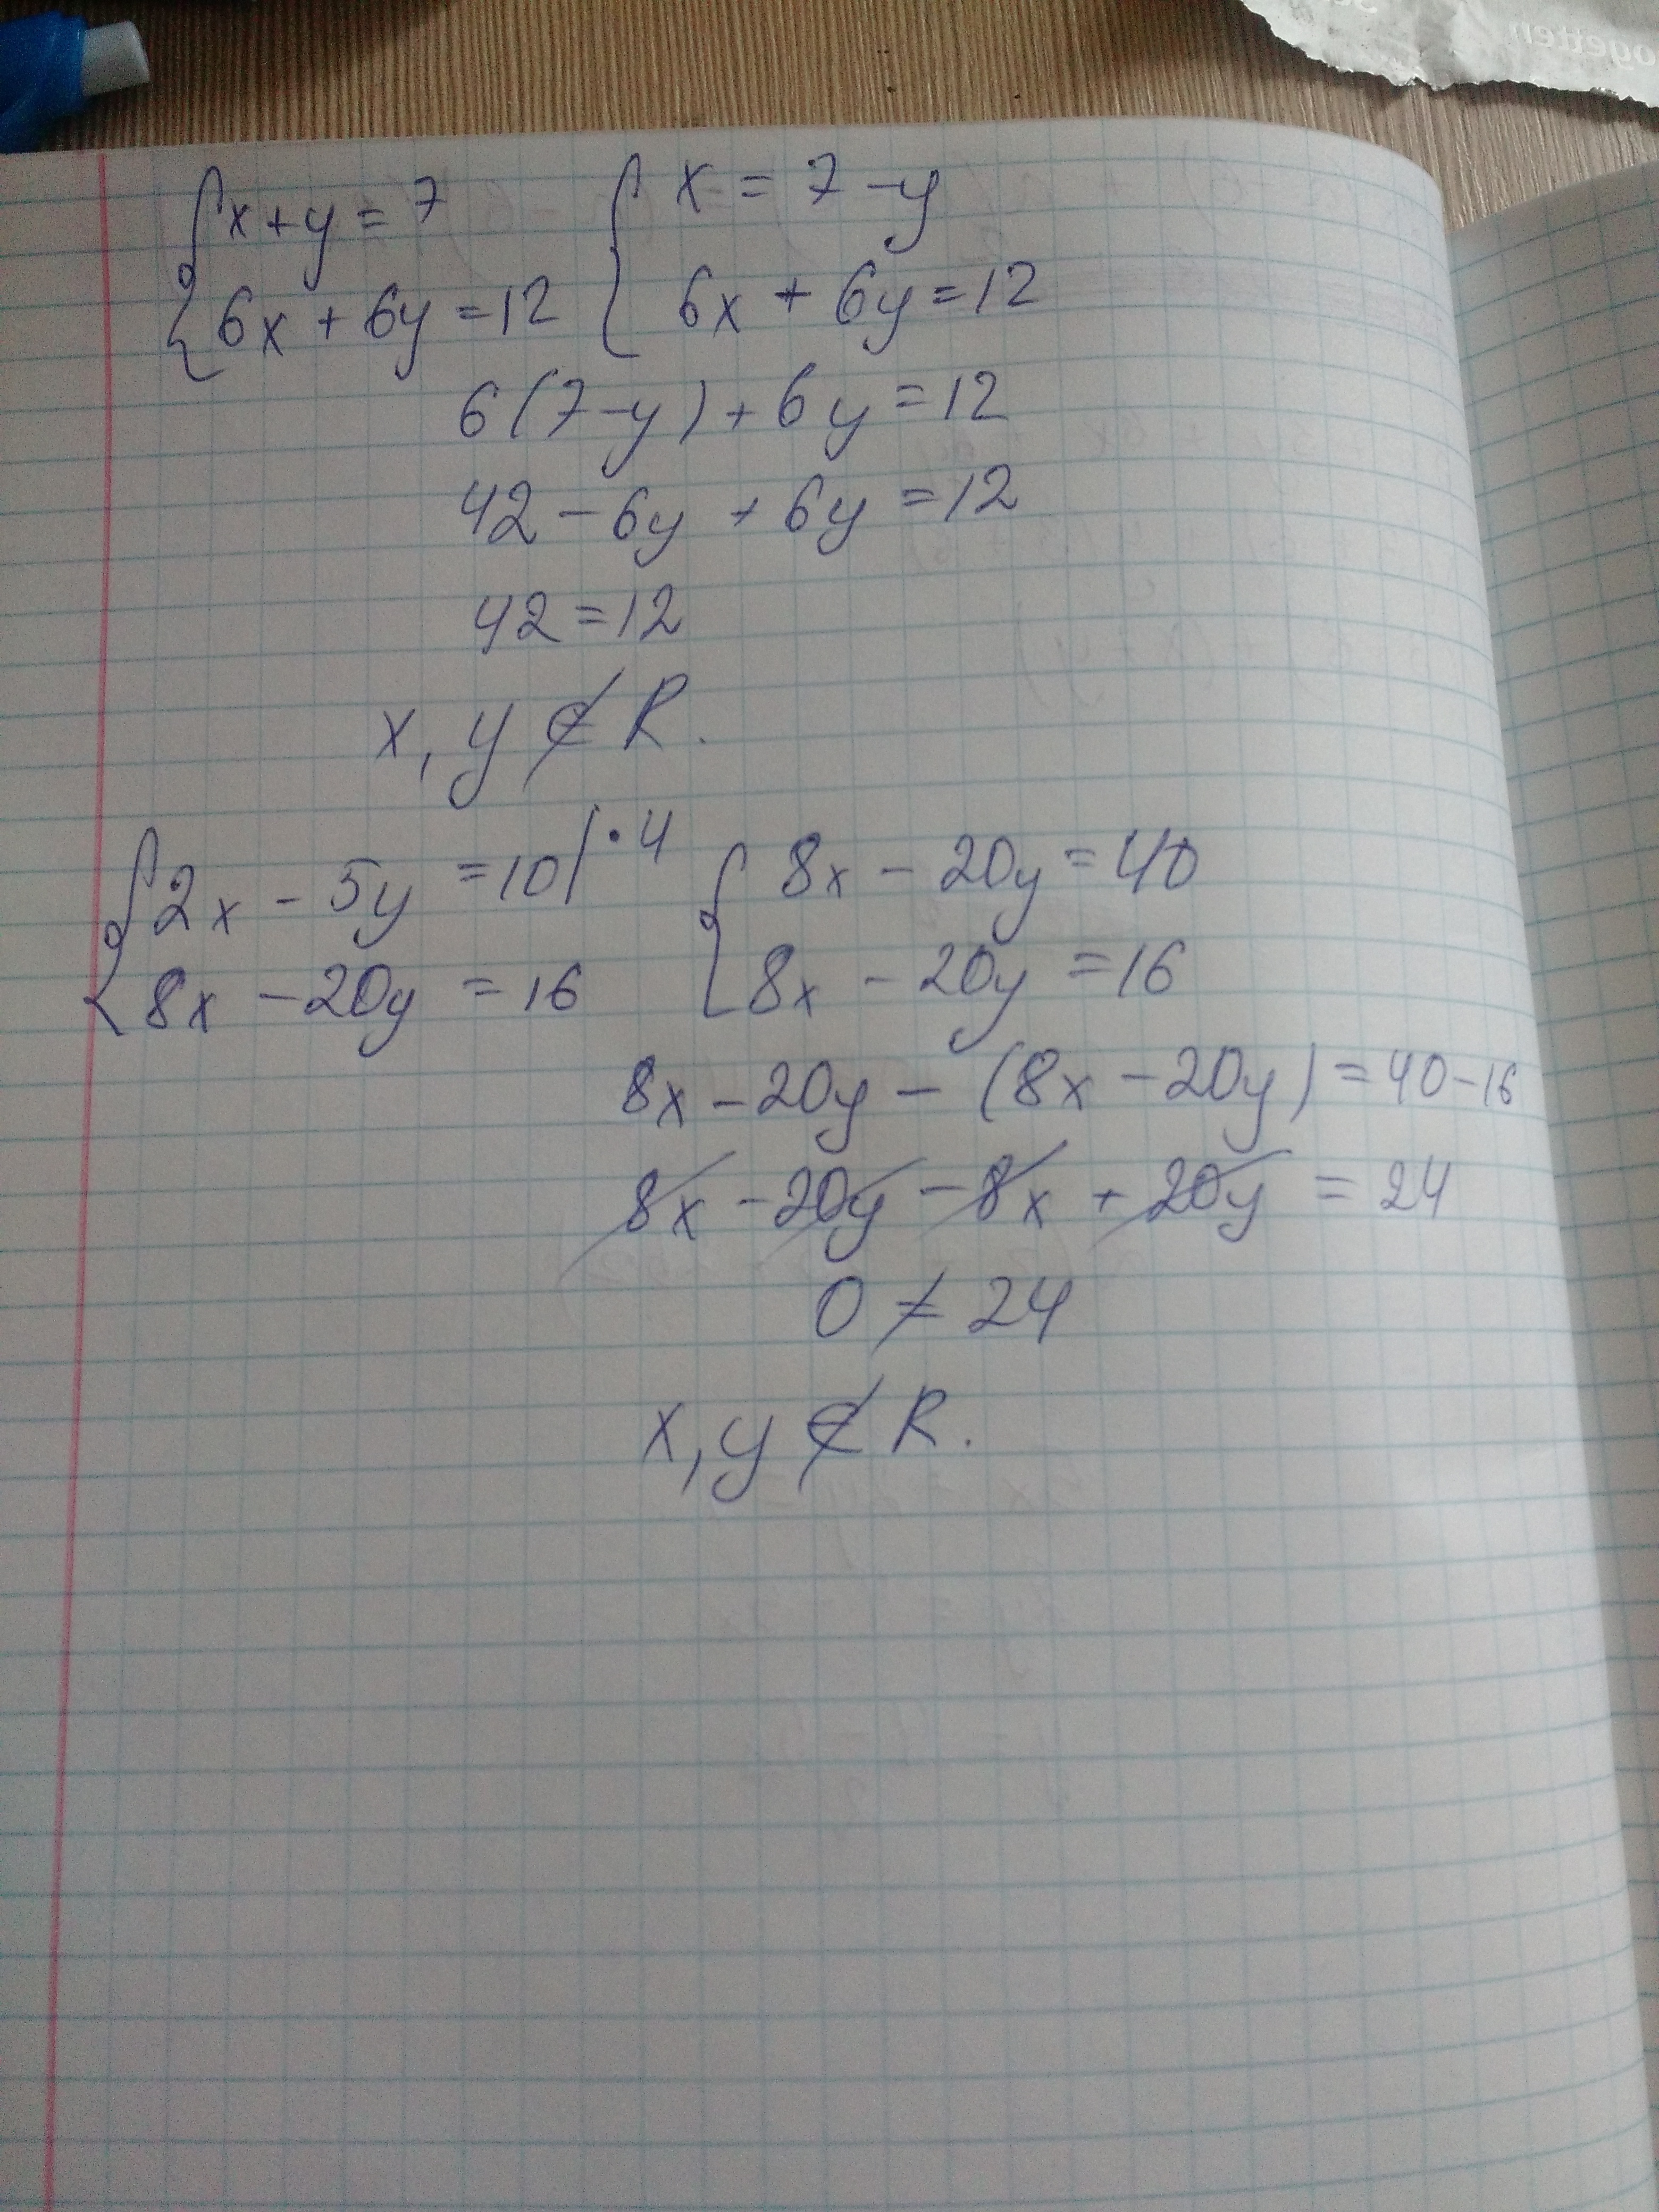 {x+y=7 {x=7-y
{6x+6y=12 {6x+6y=12
6(7-y)+6y=12
42-6y+6y=12
42=12
x,y∉R.
{2x-5y=10|·4 {8x-20y=40
{8x-20y=16 {8x-20y=16
8x-20y-(8x-20y)=40-16
8x-20y-8x+20y=24
0≠24
x,y∉R.